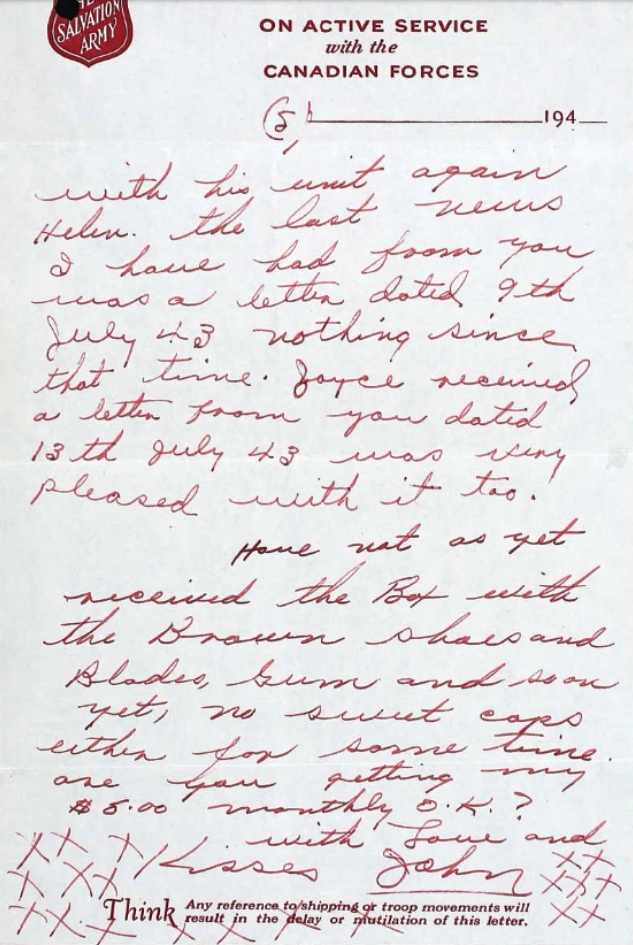 THE
SALVATION
ARMY
ON ACTIVE SERVICE
with the
CANADIAN FORCES
(5 194
with his unit again
Helen. the last news
I have had from you
was a letter dated 9th
July 43 nothing since
that time. Joyce received
a letter from you dated
13th July 43 was very
pleased with it too.
Have not as yet
received the Box with
the Brown shoes and
Blades, Gum and so on
yet, no sweet caps
either for some time.
are you getting my
$5.00 monthly O.K.?
with Love and
Kisses John
XX X XX
X XX XXX
XX X X X X XX
Think Any reference to shipping or troop movements will
result in the delay or mutilation of this letter.